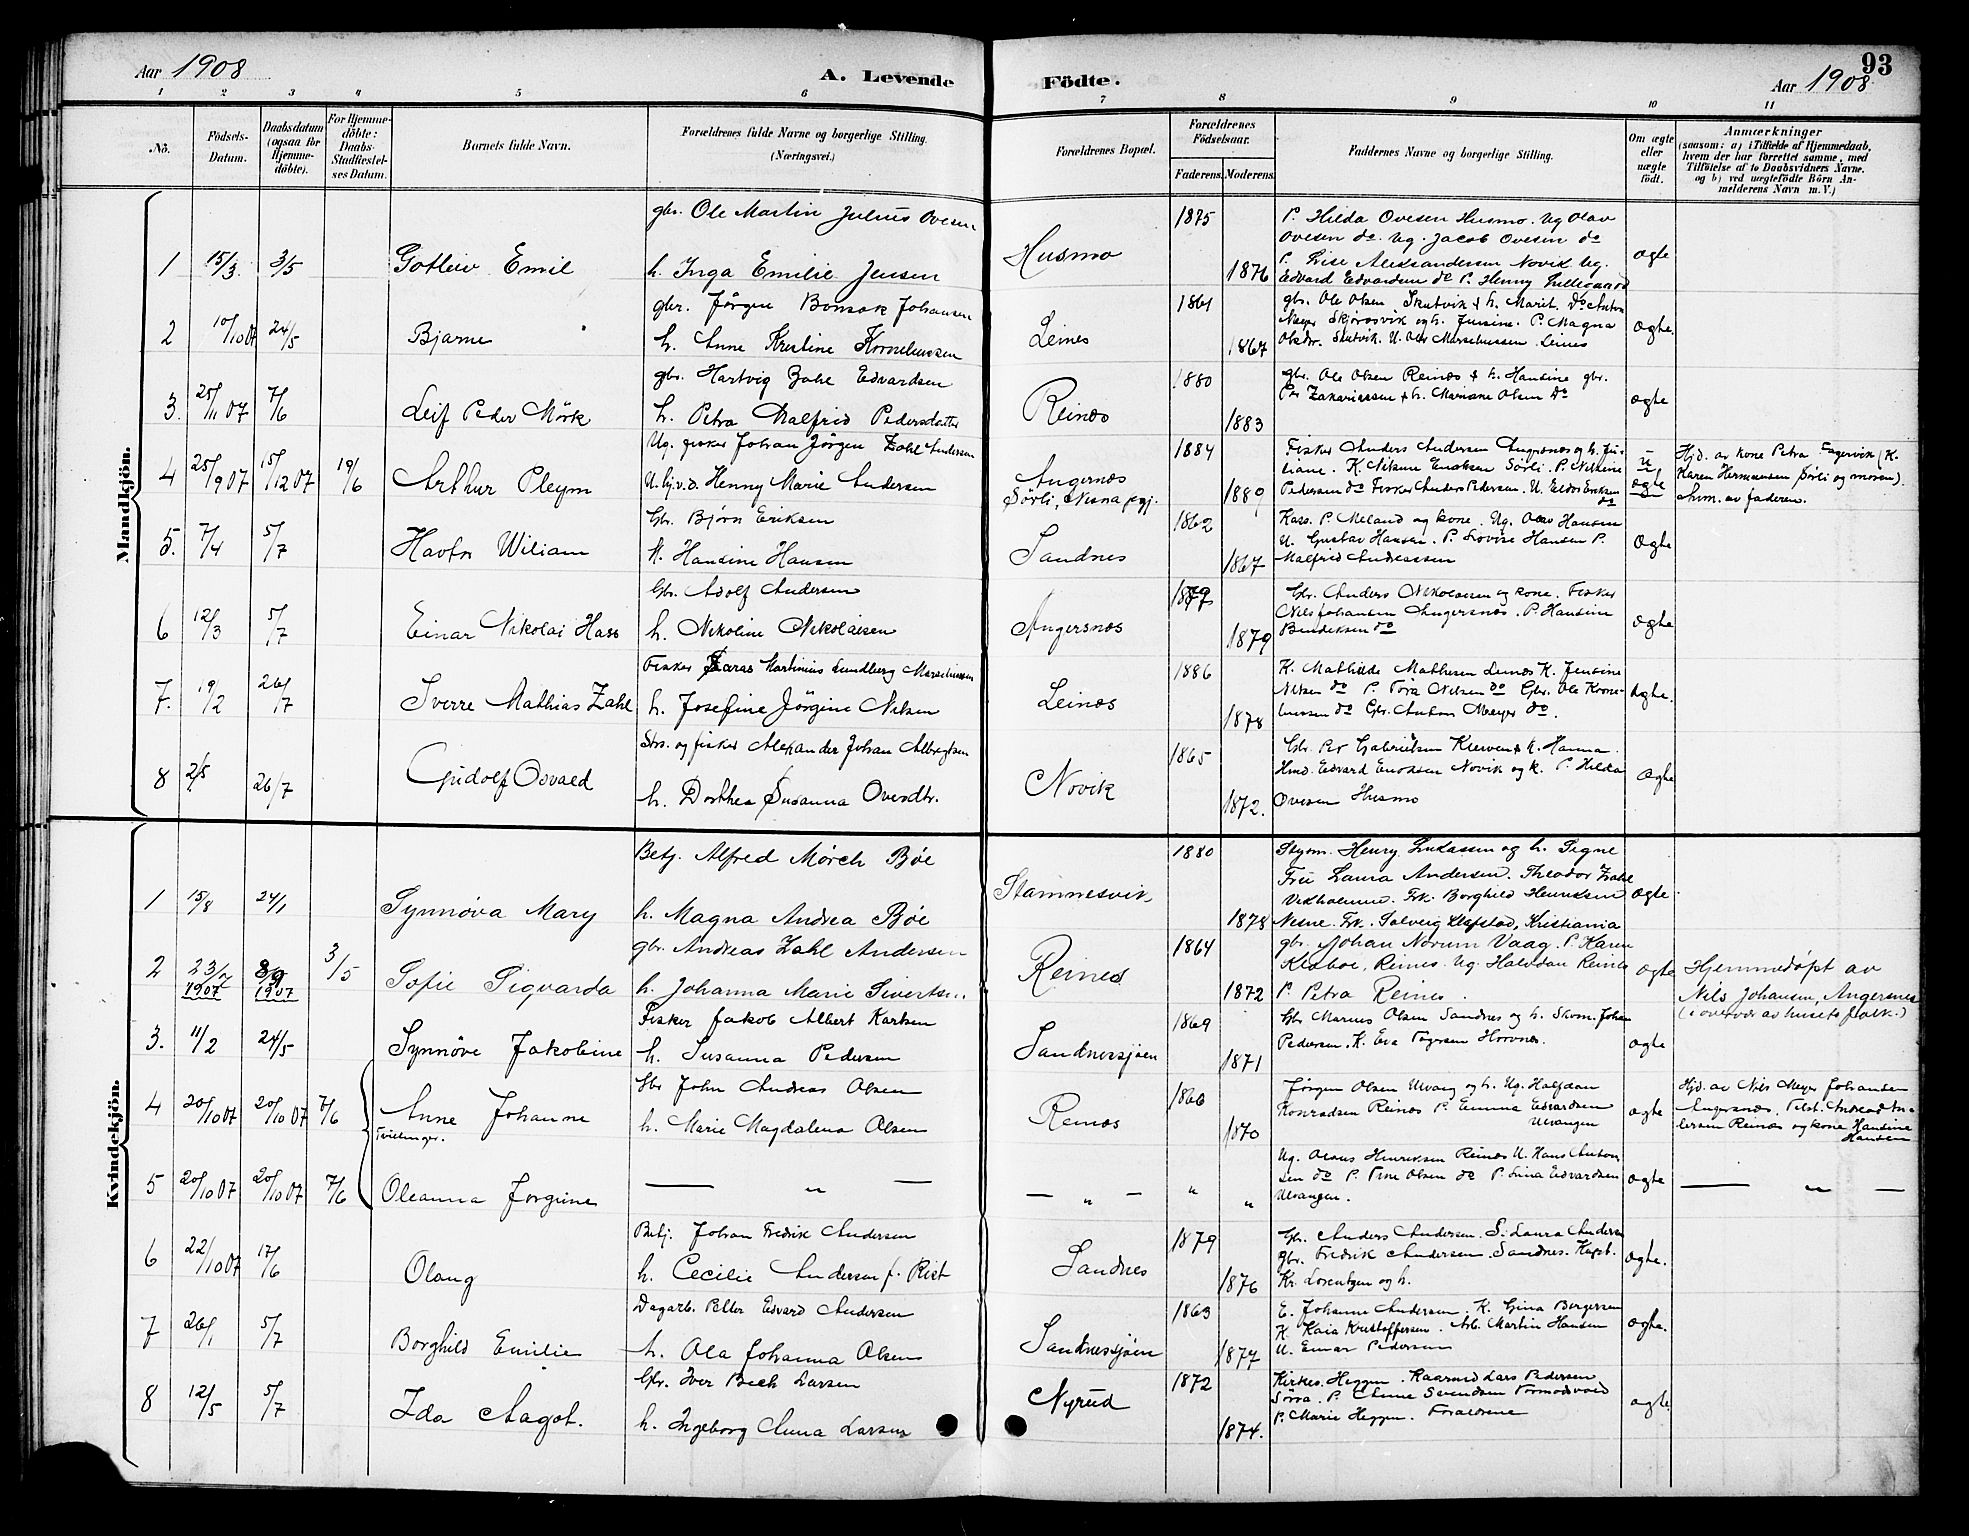 Aar 1908
A. Levende
Födte.
93
Aar 1908
1 2 3 4 5 6 7 8 9 10 11
No.
Födsels-Datum.
Daabsdatum (ogsaa for Hjemme-döbte).
For Hjemme-döbte: Daabs-Stadfæstel-ses Datum.
Barnets fulde Navn.
Forældrenes fulde Navne og borgerlige Stilling. (Næringsvei.)
Forældrenes Bopæl.
Forældrenes Födselsaar.
Faderens. Moderens.
Faddernes Navne og borgerlige Stilling.
Om ægte eller uægte födt.
Anmærkninger
(saasom: a) i Tilfælde af Hjemmedaab,
hvem der har forrettet samme, med
Tilföielse af to Daabsvidners Navne,
og b) ved uægtefödte Börn An-
melderens Navn m.V.)
Mandkjön.
gbr. Ole Martin Julius Ovesen 1875 P. Hilda Ovesen Husmo. Ug Olav
Ovesen do. Ug. Jacob Ovesen do
1 15/3 3/5 Gotleiv Emil h. Inga Emilie Jensen Husmo 1876 P. Lise Aleksandersen Novik Ug. ægte
Edvard Edvardsen do P. Henny
gbr. Jörgen Bonsak Johansen 1861 gbr. Ole Olsen Skutvik & h. Marit. do Anton
2 10/10 07 24/5 Bjarne h. Anne Kristine Korneliussen Leines 1867 Meyer Skjeræsvik og h. Jensine. P. Magna ægte.
Olsdtr. Skutvik. U. Ole Marseliussen Leines
gbr. Hartvig Zahl Edvardsen 1880 gbr. Ole Olsen Reinæs & h. Hansine gbr.
3. 25/11 07 7/6 Leif Peder Mörk h. Petra Malfrid Pedersdatter Reinæs 1883 Per Zakariassen & h. Mariane Olsen do ægte
Ug. fisker Johan Jörgen Zahl Andersen 1884 Fisker Anders Andersen Angersnes og h. Ju-
4 25/9 07 15/12 07 19/6 Arthur Pleym U. Henny Marie Andersen Angernæs 1889 liane. K. Nekine Eriksen Sörli. P. Nekine u ægte Hjd. av kone Petra Fagervik (K.
Sörli, Nesna pgj. Pedersen do Fisker Anders Pedersen. U. Eriksen do Karen Hermansen Sörli og moren).
Anm. av faderen.
Gbr. Björn Eriksen 1862 Kass. P. Meland og kone. Ug. Olav Hansen
5. 7/4 5/7 Havtor Wiliam h. Hansine Hansen Sandnes 1867 U. Gustav Hansen. P. Lovise Hansen P. ægte
Malfrid Andreassen
Gbr. Adolf Andersen Gbr. Anders Nikolaisen og kone. Fisker
6 12/3 5/7 Einar Nikolai Hass h. Nikoline Nikolaisen Angersnæs 1879 Nils Johansen Angersnæs. P. Hansine ægte
Bendiksen do
Fisker Martinius Lundberg Marseliussen 1886 K. Mathilde Mathesen Leinæs K. Jensine
7. 19/2 26/7 Sverre Mathias Zahl h. Josefine Jörgine Nilsen Leinæs 1878 Nilsen do P. Tora Nilsen do Gbr. Ole Korne- ægte.
liussen do Gbr. Anton Meyer do.
Strs. og fisker Alexander Johan Albregtsen 1865 Gbr. Per Gabrielsen Kleiven & k. Hanna.
8 2/5 26/7 Gudolf Osvald h. Dorthea Susanna Ovesdtr. Novik 1872. Hmd. Edvard Enoksen Novik og k. P. Hilda ægte
Ovesen Husmo
Kvindekjön.
Betj. Alfred Mörch Böe 1880 Skysm. Henry Lukassen og h. Signe
1 15/8 24/1 Synnöva Mary h. Magna Andrea Böe Stamnesvik 1878 Fru Laura Andersen. Theodor Zahl ægte
Vikholmen. Frk. Borghild Henriksen
Nesne. Frk. Solveig Klefstad, Kristiania
gbr. Andreas Zahl Andersen 1864 gbr. Johan Norum Vaag. P. Karen
2 23/7 1907 8/9 1907 3/5 Sofie Sigvarda h. Johanna Marie Sivertsen Reines 1872 Klæboe, Reines. Ug. Halvdan Reines ægte Hjemmedöpt av
P. Petra Reines. Nils Johansen, Angersnes
(i overvær av husets folk.)
Fisker Jakob Albert Karlsen 1869 Gbr Marius Olsen Sandnes og h. Skom. Johan
3. 11/2 24/5 Synnöve Jakobine h. Susanna Pedersen Sandnessjöen 1871 Pedersen. K. Eva Horvnes. ægte
Gbr John Andreas Olsen 1866 Jörgen Olsen Ulvang og h. Ug. Halfdan Hjd. av Nils Meyer Johansen
4 20/10 07 20/10 07 7/6 Anne Johanne h. Marie Magdalena Olsen Reinæs 1870 Konradsen Reinæs P. Emma Edvardsen Ulvangen ægte Angersnæs. Tilst. Andreas An-
Tvillinger. dersen Reinæs og kone Hansine Hansen
Ug. Olaus Henriksen Reinæs U. Hans Anton
5 20/10 07 20/10 07 7/6 Oleanna Jorgine — „ — — „ — „ „ sen do P. Trine Olsen do P. Lina Edvardsen ægte — „ —
Ulvangen.
Betj. Johan Fredrik Andersen 1879 Gbr. Anders Andersen. S. Laura Andersen
6 22/10 07 17/6 Olaug h. Cecilie Andersen f. Rist Sandnes 1876 gbr. Fredrik Andersen. Sandnes. ægte.
Kr. Lorentzen og h.
Dagarb. Petter Edvard Andersen 1863 E. Johanne Andersen. K. Gina Borgersen
7 26/1 5/7 Borghild Emilie h. Ola Johanna Olsen Sandnessjöen 1877 K. Kaia Kristoffersen. Arb. Martin Hansen ægte.
U. Einar Pedersen
Gbr. Iver Bech Larsen 1872 Kirkes. Heggen. Gaarmd Lars Pedersen
8 12/5 5/7 Ida Aagot. h. Ingeborg Anna Larsen Nyrud 1874. Sörra. P. Anne Svendsen Formodvold ægte
P. Marie Heggen. Forældrene